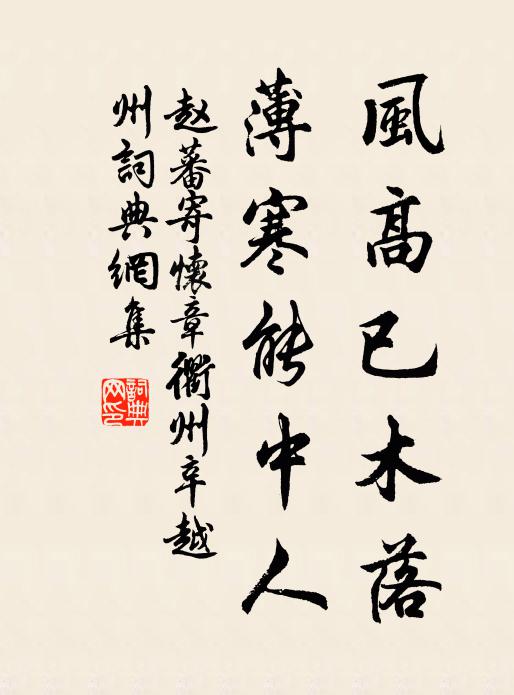 風高已木落
薄寒能中人
赵蕃寄懷章衢州辛越
州詞典網集
詞典网印